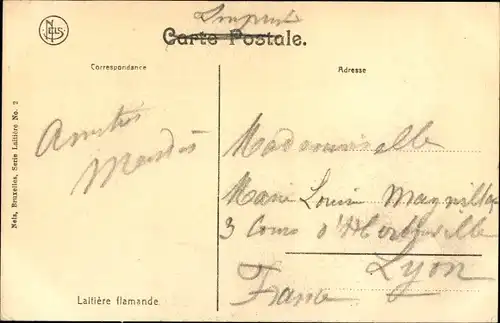 Imprimé
Carte Postale.
Correspondance
Adresse
NELS
Nels, Bruxelles, Serie Laitière No. 2
Amitiés
Mademoiselle
Marie Louise
3 Cours d'Herbouville
Lyon
France
Laitière flamande.